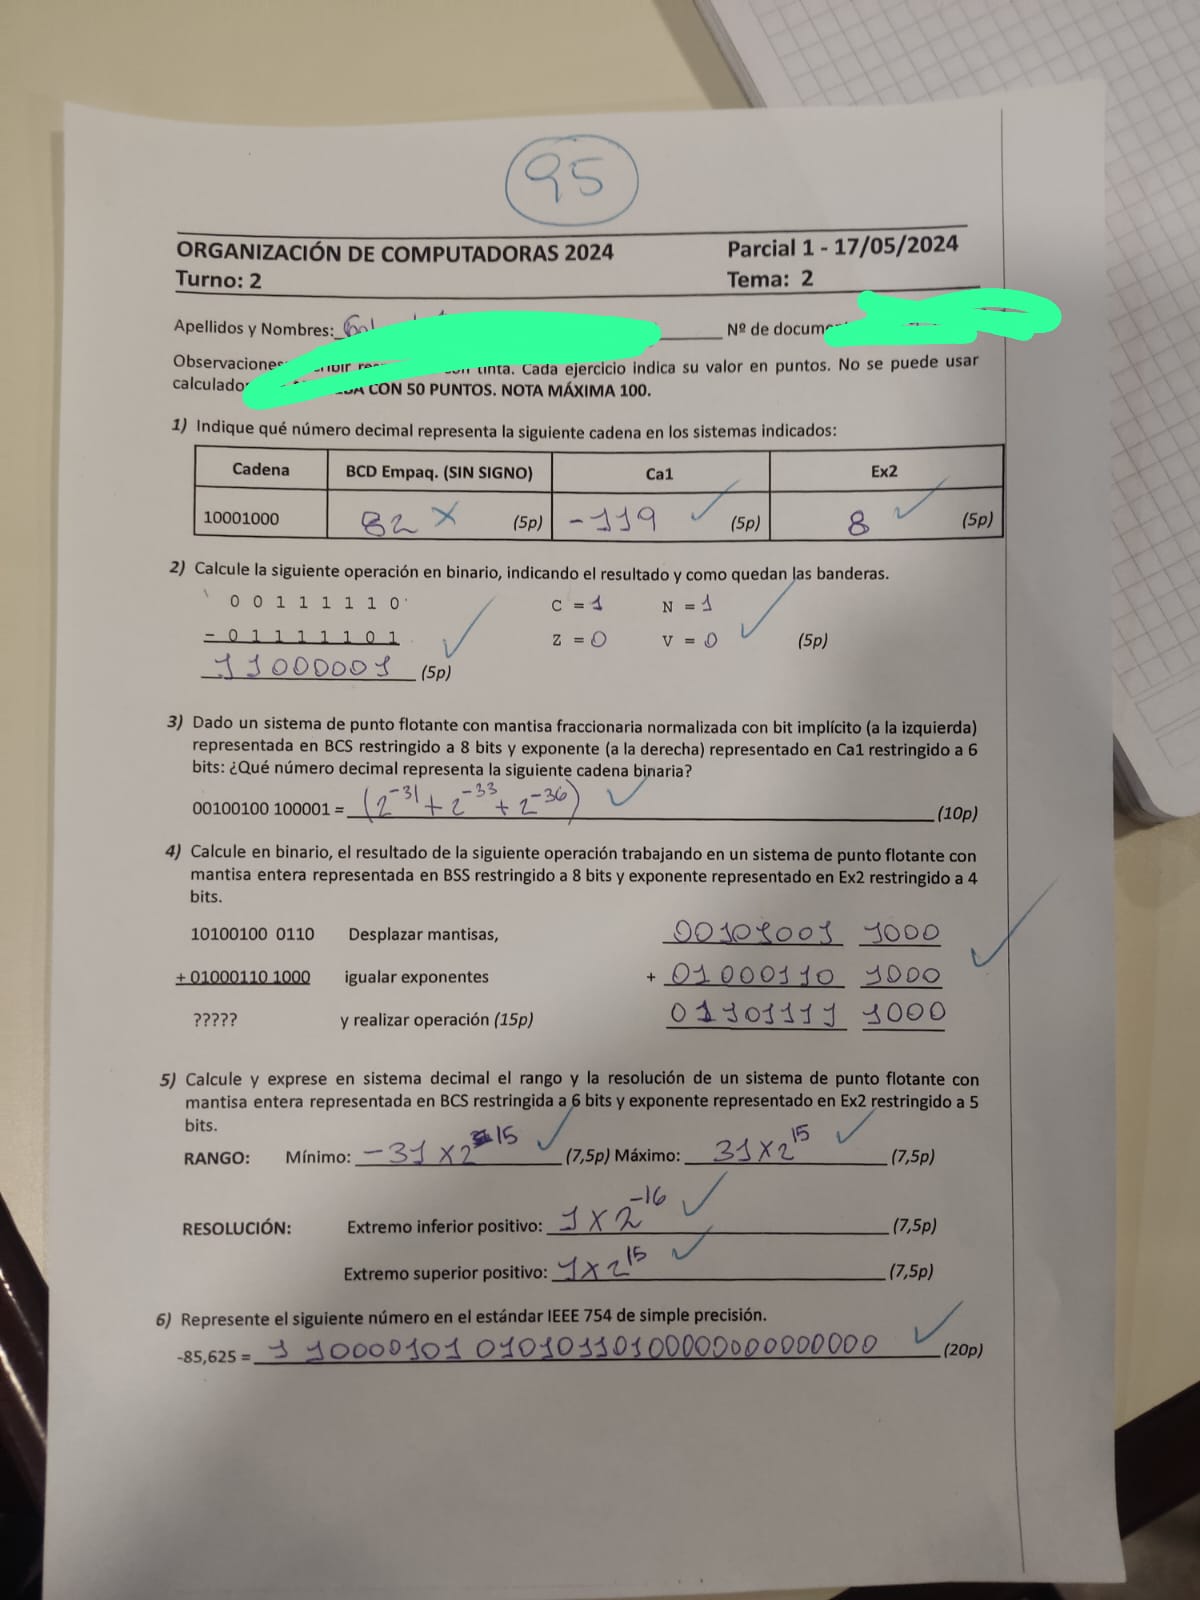 95
ORGANIZACIÓN DE COMPUTADORAS 2024 Parcial 1 - 17/05/2024
Turno: 2 Tema: 2
Apellidos y Nombres: Nº de docum
Observaciones tinta. Cada ejercicio indica su valor en puntos. No se puede usar
CON 50 PUNTOS. NOTA MÁXIMA 100.
1) Indique qué número decimal representa la siguiente cadena en los sistemas indicados:
Cadena BCD Empaq. (SIN SIGNO) Ca1 Ex2
10001000 82 x (5p) -119 ✓ (5p) 8 ✓ (5p)
2) Calcule la siguiente operación en binario, indicando el resultado y como quedan las banderas.
0 0 1 1 1 1 1 0 C = 1 N = 1
- 0 1 1 1 1 1 0 1 ✓ Z = 0 V = 0 ✓ (5p)
11000001 (5p)
3) Dado un sistema de punto flotante con mantisa fraccionaria normalizada con bit implícito (a la izquierda)
representada en BCS restringido a 8 bits y exponente (a la derecha) representado en Ca1 restringido a 6
bits: ¿Qué número decimal representa la siguiente cadena binaria?
00100100 100001 = (2^-31 + 2^-33 + 2^-36) ✓ (10p)
4) Calcule en binario, el resultado de la siguiente operación trabajando en un sistema de punto flotante con
mantisa entera representada en BSS restringido a 8 bits y exponente representado en Ex2 restringido a 4
bits.
10100100 0110 Desplazar mantisas, 00101001 1000
+ 01000110 1000 igualar exponentes + 01000110 1000 ✓
????? y realizar operación (15p) 01101111 1000
5) Calcule y exprese en sistema decimal el rango y la resolución de un sistema de punto flotante con
mantisa entera representada en BCS restringida a 6 bits y exponente representado en Ex2 restringido a 5
bits.
RANGO: Mínimo: -31 x 2^15 ✓ (7,5p) Máximo: 31 x 2^15 ✓ (7,5p)
RESOLUCIÓN: Extremo inferior positivo: 1 x 2^-16 ✓ (7,5p)
Extremo superior positivo: 1 x 2^15 ✓ (7,5p)
6) Represente el siguiente número en el estándar IEEE 754 de simple precisión.
-85,625 = 1 10000101 01010110100000000000000 ✓ (20p)